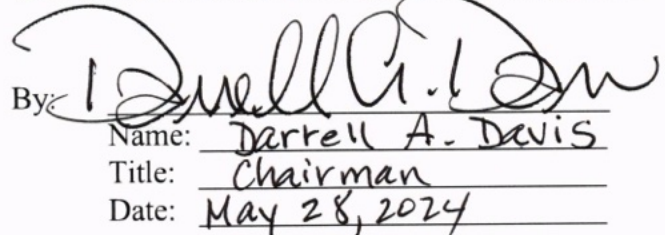 By: Darrell A. Davis
Name: Darrell A. Davis
Title: Chairman
Date: May 28, 2024